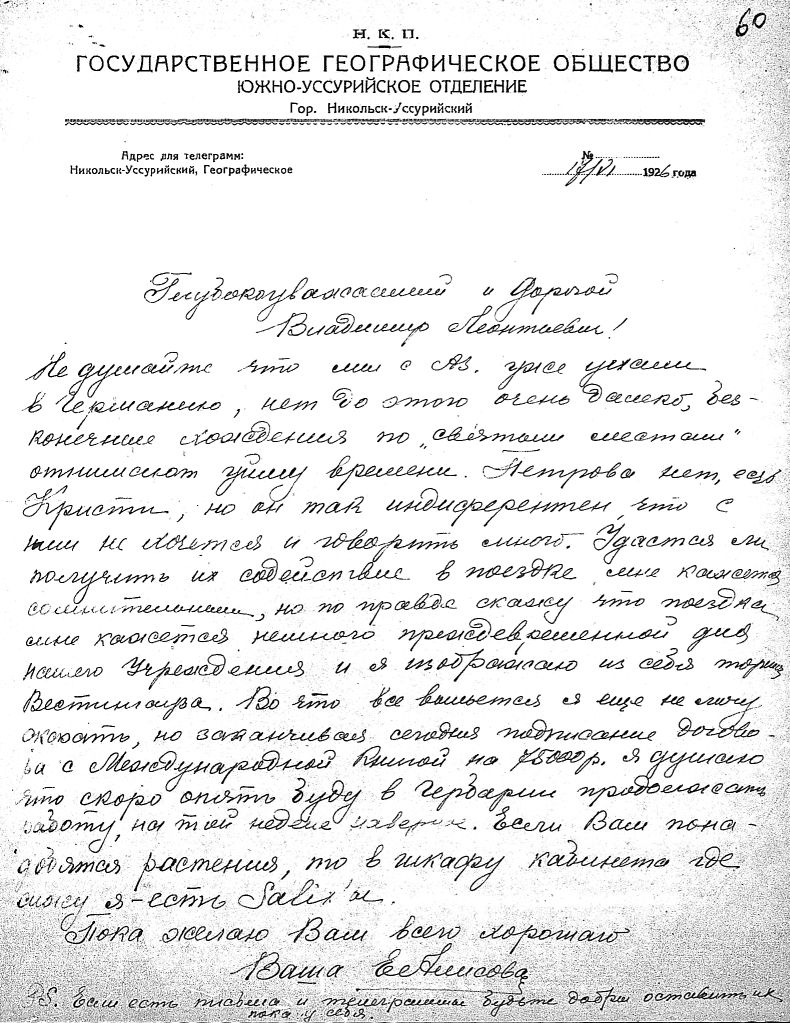 60
Н. К. П.
ГОСУДАРСТВЕННОЕ ГЕОГРАФИЧЕСКОЕ ОБЩЕСТВО
ЮЖНО-УССУРИЙСКОЕ ОТДЕЛЕНИЕ
Гор. Никольск-Уссурийский
Адрес для телеграмм:
Никольск-Уссурийский, Географическое
№
17/VI 1926 года
Глубокоуважаемый и Дорогой
Владимир Леонтьевич!
Не думайте что мы с Аз. уже уехали
в Германию, нет до этого очень далеко, без-
конечные хождения по „святым местам"
отнимают уйму времени. Петрова нет, есть
Кристи, но он так индиферентен что с
ним не хочется и говорить много. Удастся ли
получить их содействие в поездке мне кажется
сомнительным, но по правде скажу что поездка
мне кажется немного преждевременной для
нашего Учреждения и я изображаю из себя тормаз
Вестингауза. Во что все выльется я еще не могу
сказать, но заканчивая сегодня подписание догово-
ра с Международной Книгой на 75000р. я думаю
что скоро опять буду в Гербарии продолжать
работу, на той неделе наверное. Если Вам пона-
добятся растения, то в шкафу кабинета где
сижу я - есть Salix'ы.
Пока желаю Вам всего хорошаго
Ваша Е Алисова
PS. Если есть письма и телеграммы будьте добры оставить их
пока у себя.